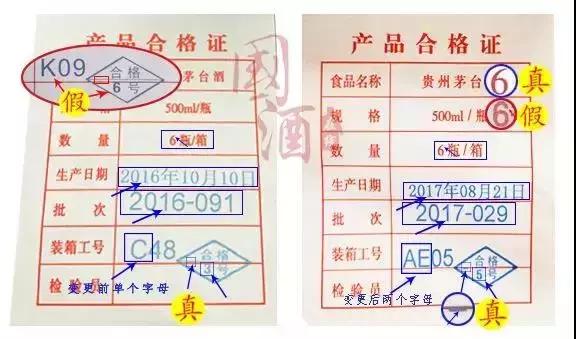 产品合格证
K09
合格
6号
假
茅台酒
格
500ml/瓶
数 量
6瓶/箱
生产日期
2016年10月10日
批 次
2016-091
装箱工号
C48
合格
3号
检验员
变更前单个字母
真
国酒
产品合格证
食品名称
贵州茅台
6
真
规 格
500ml/瓶
6
假
数 量
6瓶/箱
生产日期
2017年08月21日
批 次
2017-029
装箱工号
AE05
合格
5号
检验员
变更后两个字母
真